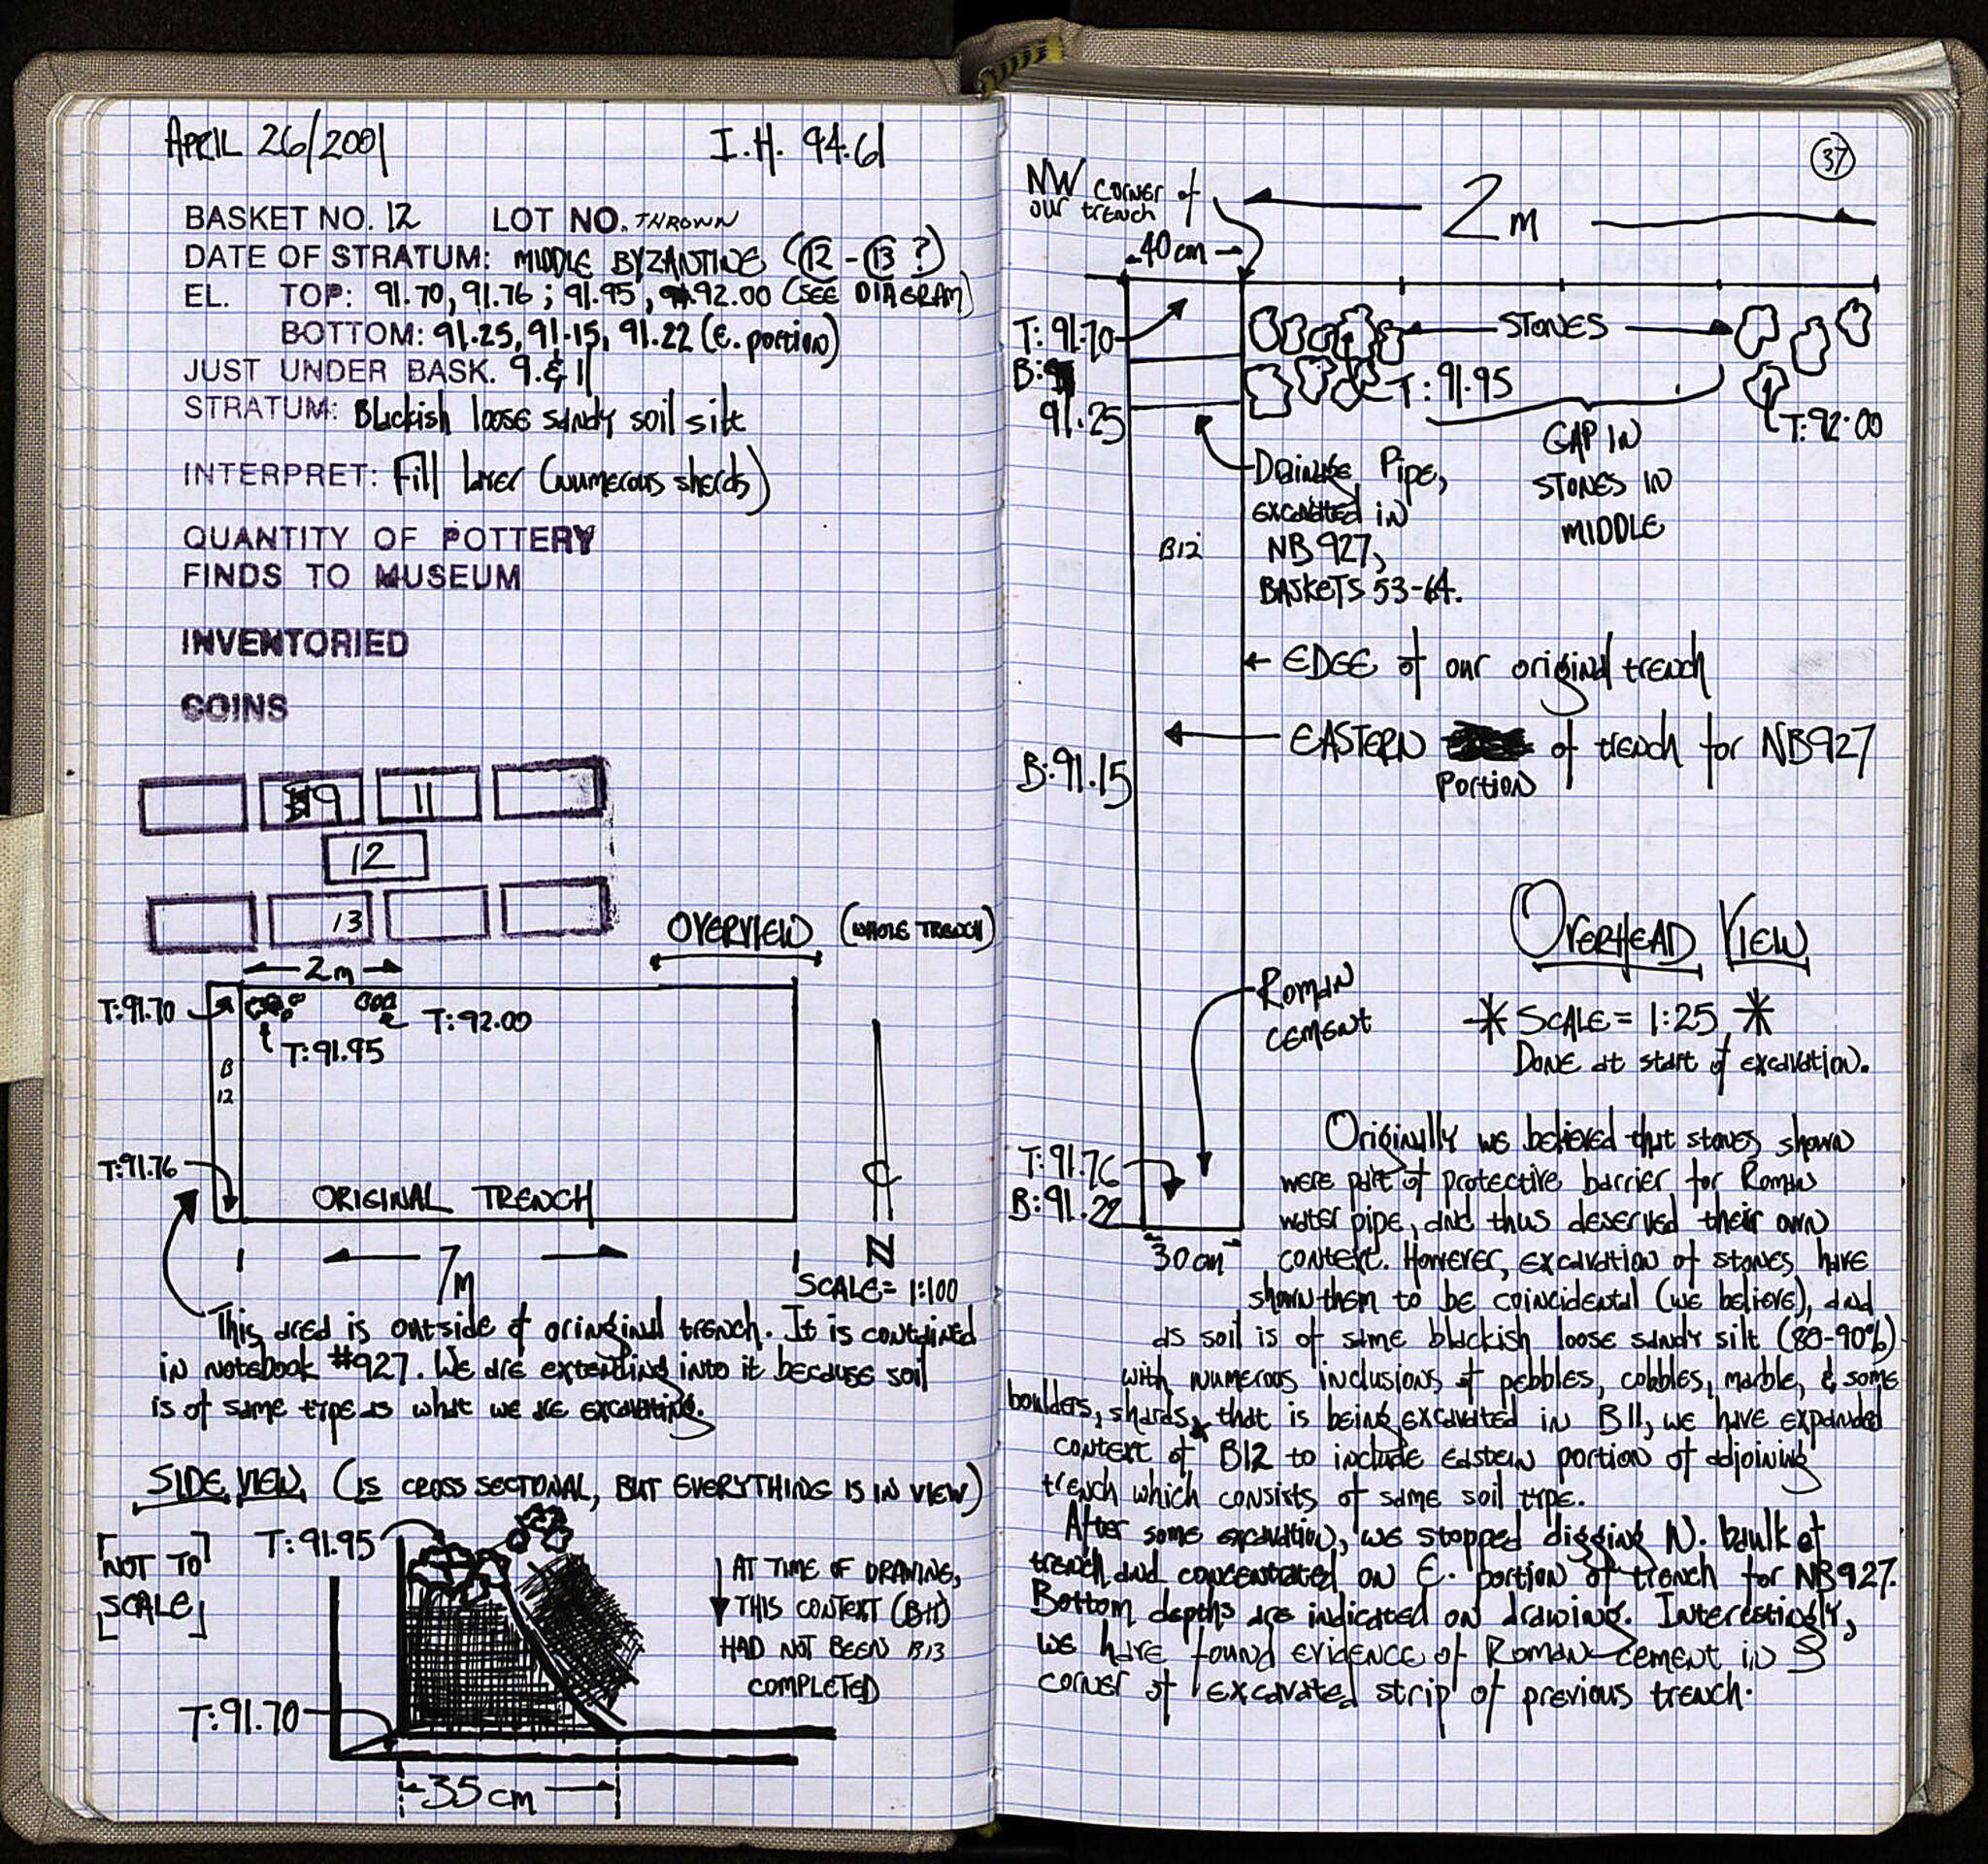 APRIL 26/2001
I.H. 94.61
BASKET NO. 12 LOT NO. THROWN
DATE OF STRATUM: MIDDLE BYZANTINE (12 - 13 ?)
EL. TOP: 91.70, 91.76 ; 91.95, 92.00 (SEE DIAGRAM)
BOTTOM: 91.25, 91.15, 91.22 (E. portion)
JUST UNDER BASK. 9. & 11
STRATUM: Blackish loose sandy soil silt
INTERPRET: Fill layer (numerous sherds)
QUANTITY OF POTTERY
FINDS TO MUSEUM
INVENTORIED
COINS
9 11
12
13
OVERVIEW (WHOLE TRENCH)
2m
T:91.70
T:92.00
T:91.95
B
12
T:91.76
ORIGINAL TRENCH
7m
N
SCALE= 1:100
This area is outside of oringinal trench. It is contained
in notebook #927. We are extending into it because soil
is of same type as what we are excavating.
SIDE VIEW (IS CROSS SECTIONAL, BUT EVERYTHING IS IN VIEW)
[NOT TO
SCALE]
T:91.95
AT TIME OF DRAWING,
THIS CONTEXT (B11)
HAD NOT BEEN B13
COMPLETED
T:91.70
35cm
37
NW corner of
our trench
2m
40cm
T:91.70
B:
91.25
STONES
T:91.95
T:92.00
GAP IN
STONES IN
MIDDLE
Drainage Pipe,
excavated in
NB 927,
BASKETS 53-64.
B12
EDGE of our original trench
EASTERN of trench for NB927
Portion
B:91.15
OVERHEAD VIEW
* SCALE= 1:25 *
DONE at start of excavation.
Roman
cement
T:91.76
B:91.22
30cm
Originally we believed that stones shown
were part of protective barrier for Roman
water pipe, and thus deserved their own
context. However, excavation of stones have
shown them to be coincidental (we believe), and
as soil is of same blackish loose sandy silt (80-90%)
with numerous inclusions of pebbles, cobbles, marble, & some
boulders, shards, that is being excavated in B11, we have expanded
context of B12 to include eastern portion of adjoining
trench which consists of same soil type.
After some excavation, we stopped digging N. baulk of
trench and concentrated on E. portion of trench for NB927.
Bottom depths are indicated on drawing. Interestingly,
we have found evidence of Roman cement in S
corner of excavated strip of previous trench.